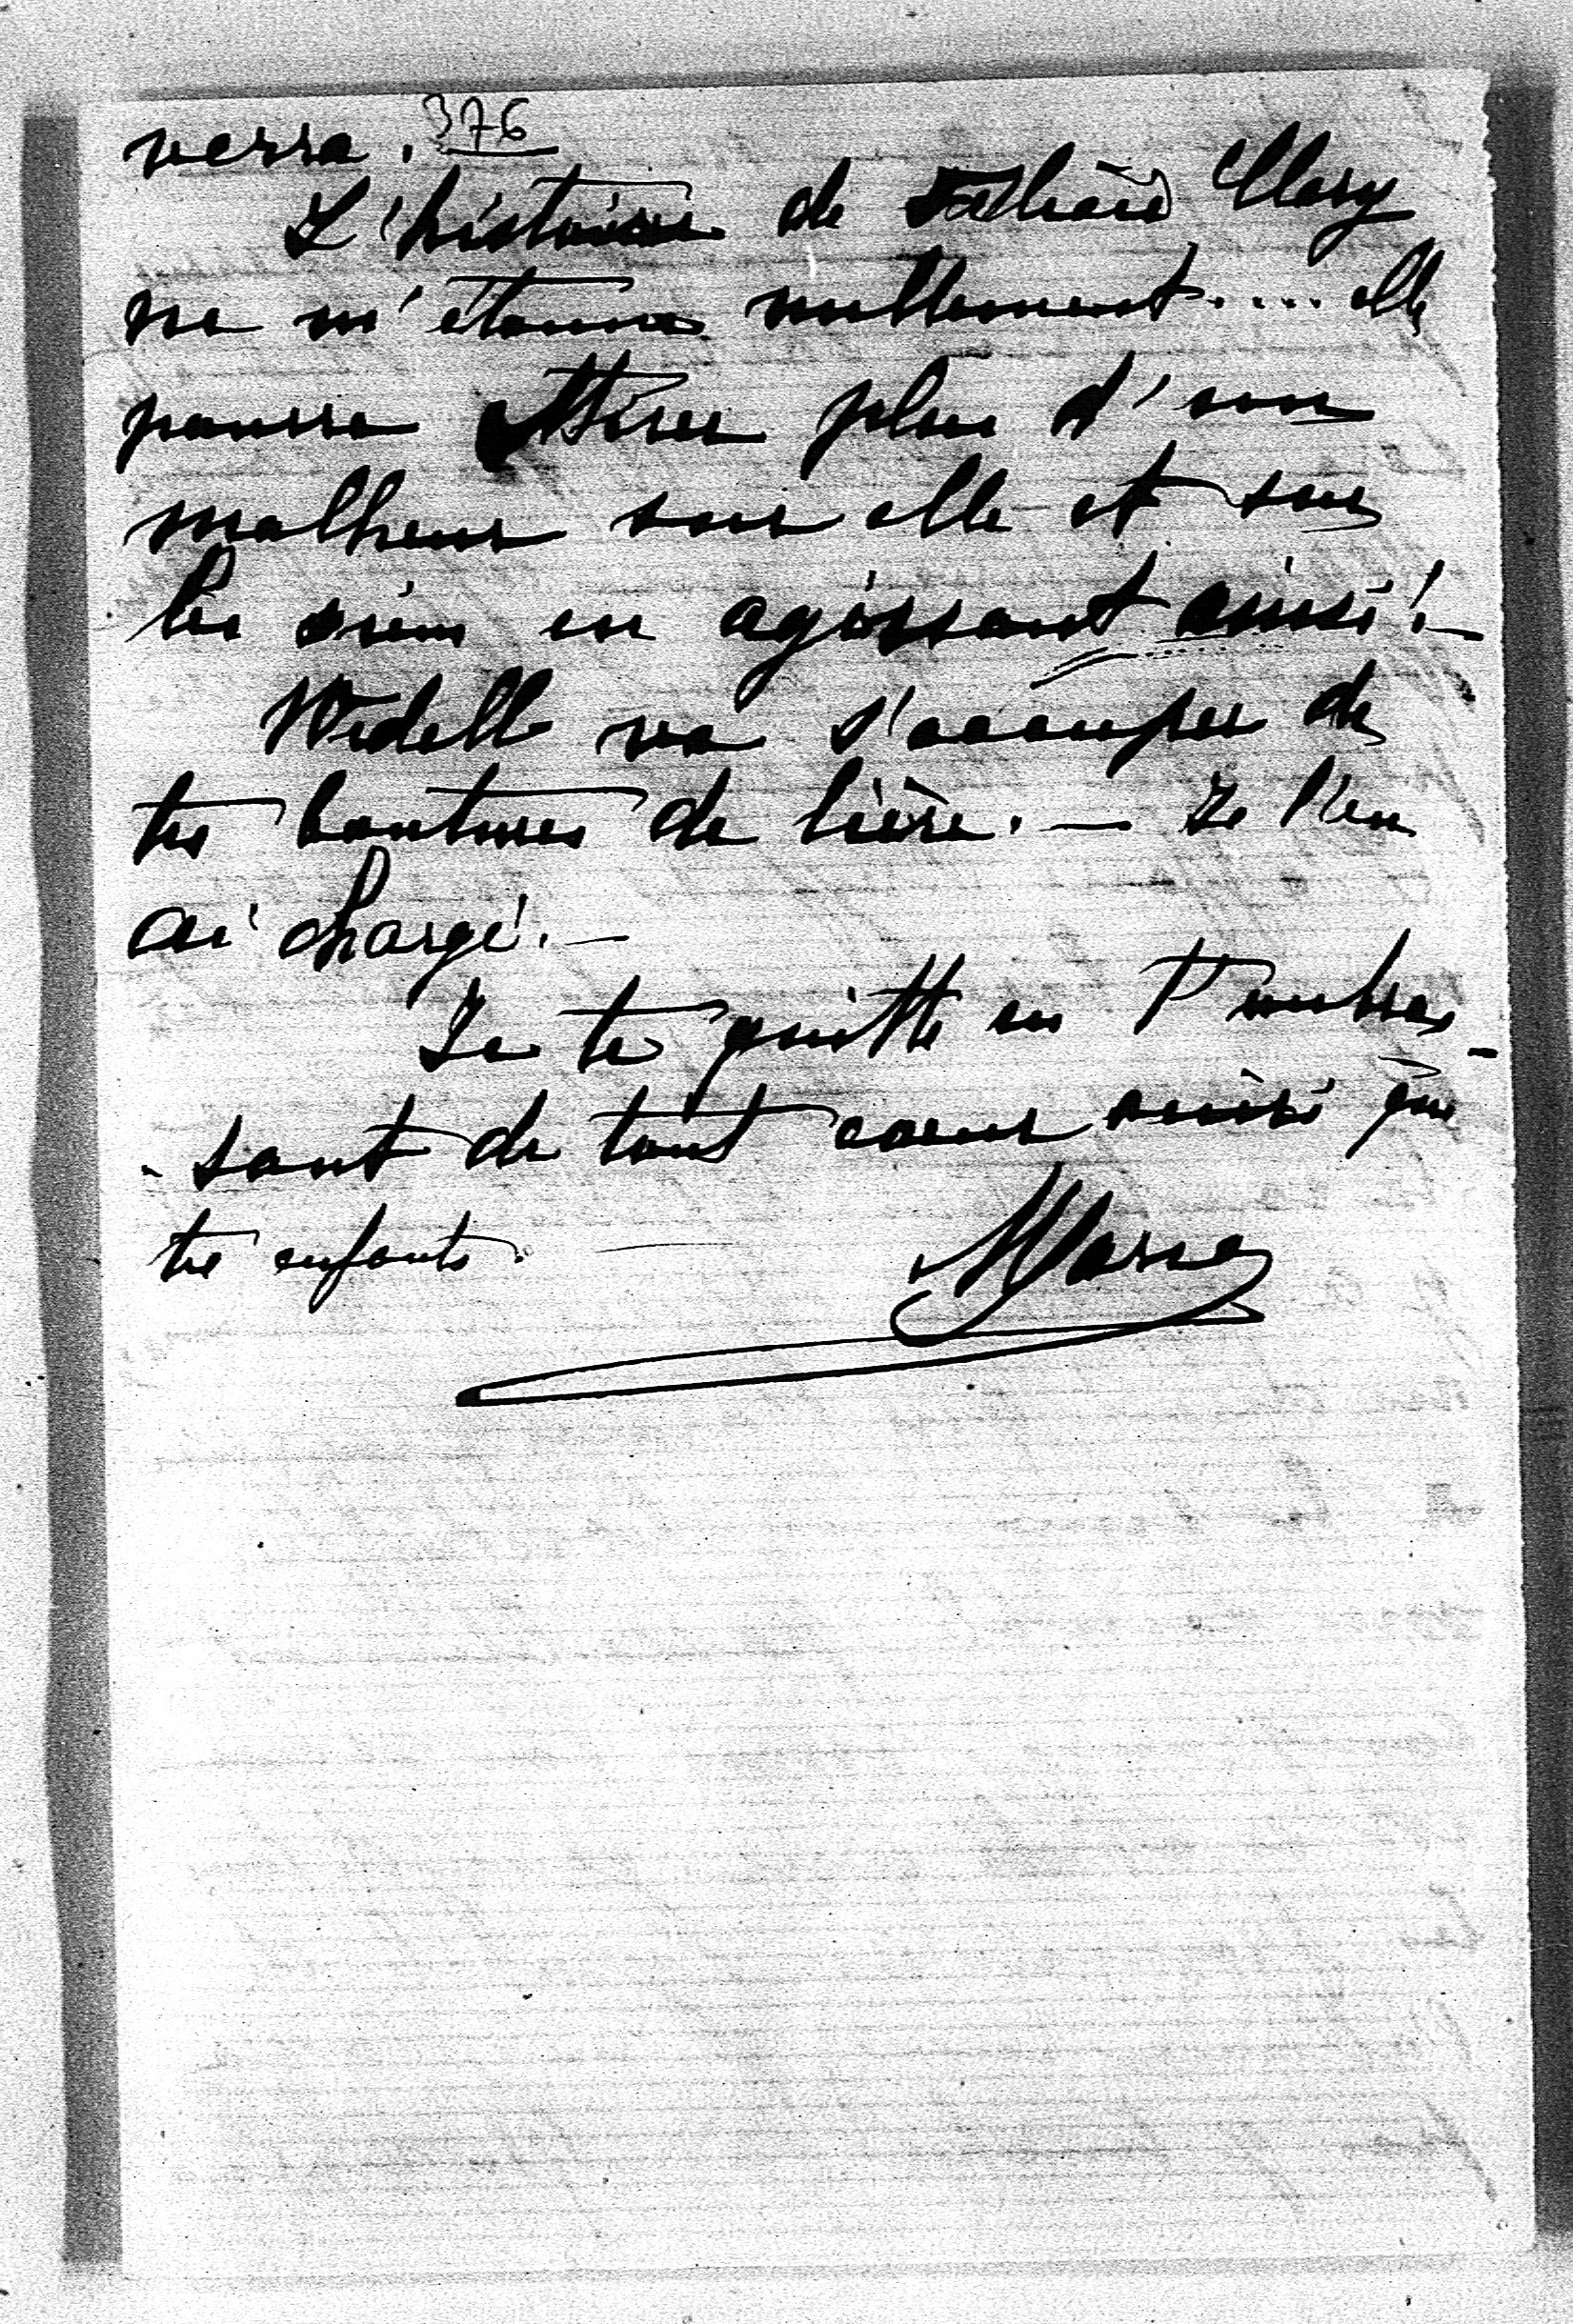 verra. 376
L'histoire de Mary
ne m'étonne nullement.... elle
pourra attirer plus d'un
malheur sur elle et sur
les siens en agissant ainsi! —
Wedell va s'occuper de
tes boutures de lierre. — Je l'en
ai chargé. —
Je te quitte en t'embras-
-sant de tout coeur ainsi que
tes enfants. —